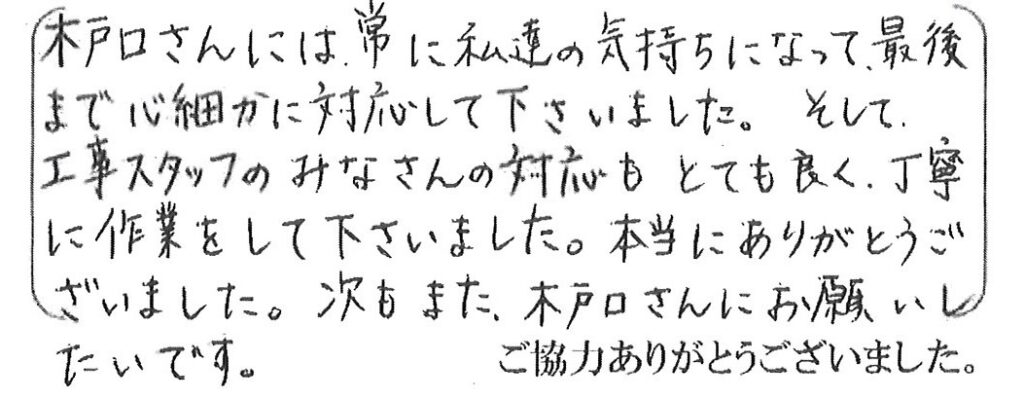 木戸口さんには、常に私達の気持ちになって、最後
まで心細かに対応して下さいました。そして、
工事スタッフのみなさんの対応もとても良く、丁寧
に作業をして下さいました。本当にありがとうご
ざいました。次もまた、木戸口さんにお願いし
たいです。 ご協力ありがとうございました。